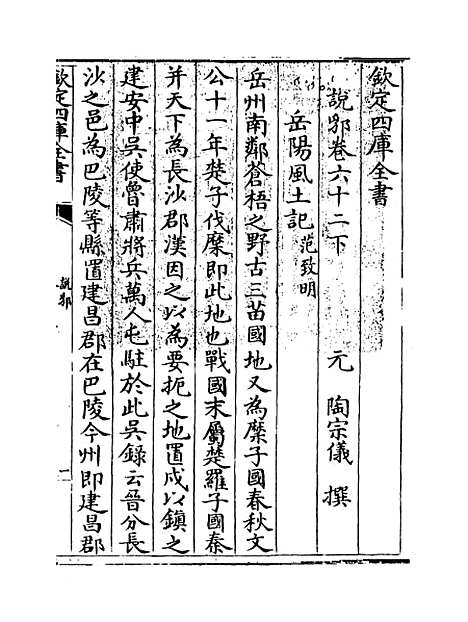 欽定四庫全書
說郛卷六十二下
元 陶宗儀 撰
岳陽風土記范致明
岳州南鄰蒼梧之野古三苗國地又為麋子國春秋文
公十一年楚子伐麋即此地也戰國末屬楚羅子國秦
并天下為長沙郡漢因之以為要扼之地置戍以鎮之
建安中吳使魯肅將兵萬人屯駐於此吳錄云晉分長
沙之邑為巴陵等縣置建昌郡在巴陵今州即建昌郡
欽定四庫全書
說郛